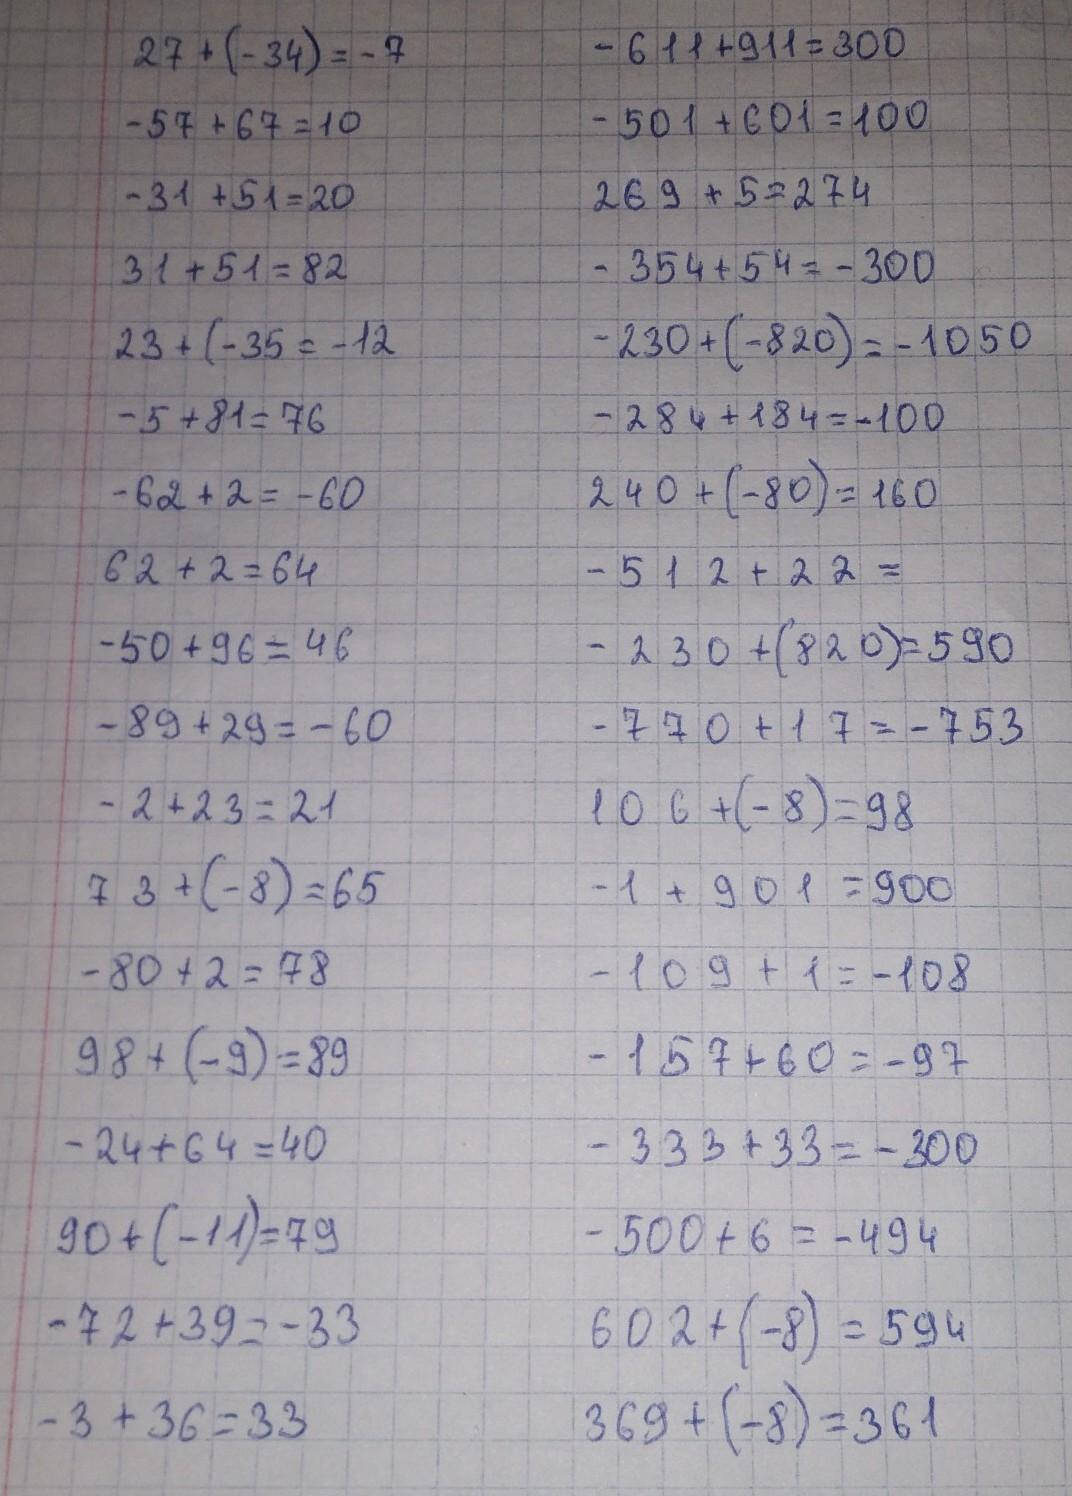 27+(-34)=-7
-57+67=10
-31+51=20
31+51=82
23+(-35=-12
-5+81=76
-62+2=-60
62+2=64
-50+96=46
-89+29=-60
-2+23=21
73+(-8)=65
-80+2=78
98+(-9)=89
-24+64=40
90+(-11)=79
-72+39=-33
-3+36=33
-611+911=300
-501+601=100
269+5=274
-354+54=-300
-230+(-820)=-1050
-284+184=-100
240+(-80)=160
-512+22=
-230+(820)=590
-770+17=-753
106+(-8)=98
-1+901=900
-109+1=-108
-157+60=-97
-333+33=-300
-500+6=-494
602+(-8)=594
369+(-8)=361